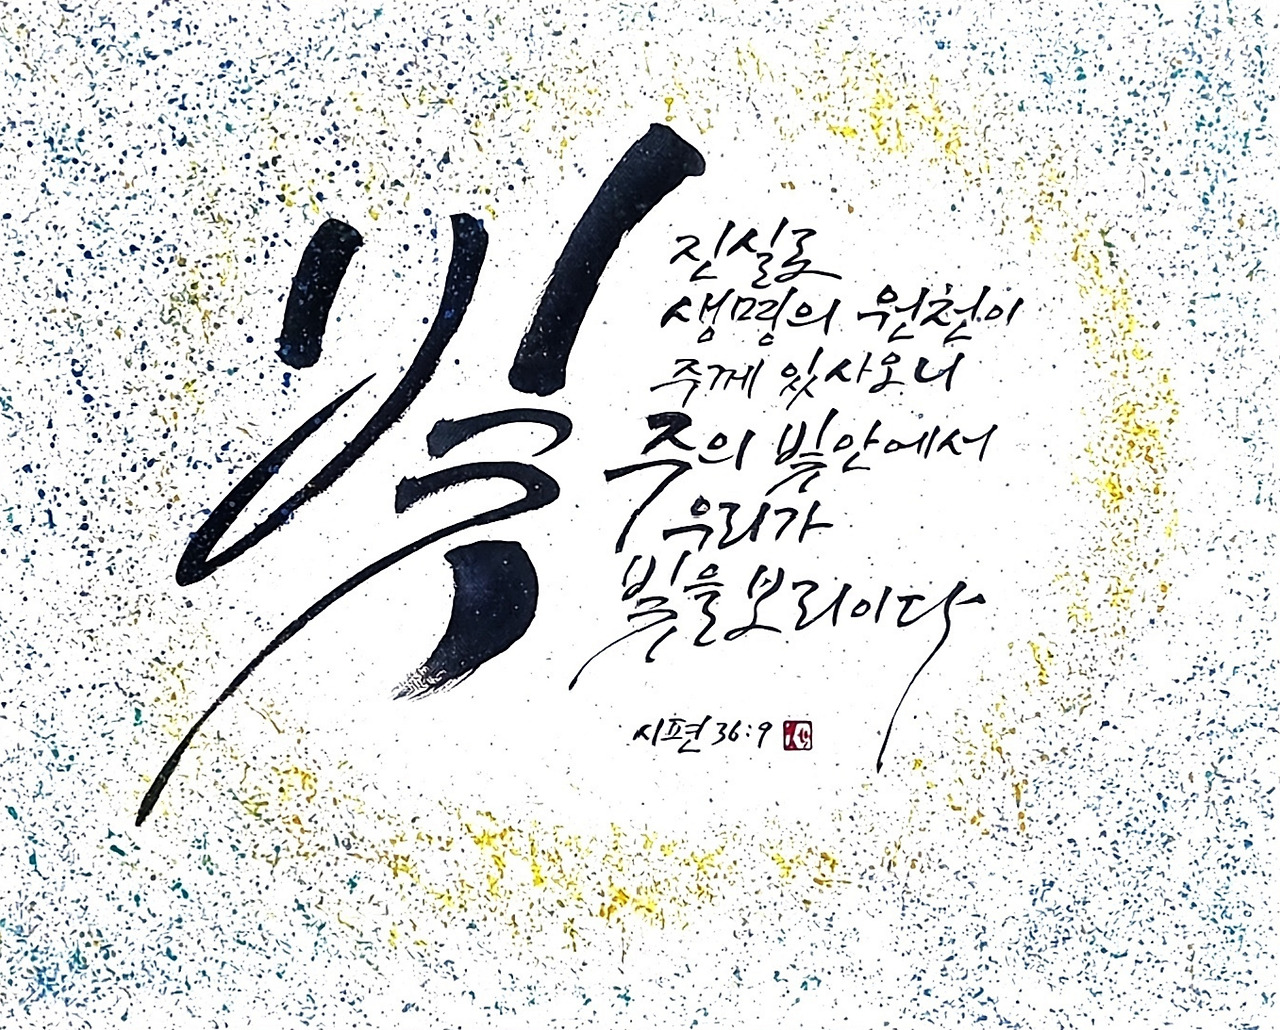 빛
진실로
생명의 원천이
주께 있사오니
주의 빛 안에서
우리가
빛을 보리이다
시편 36:9